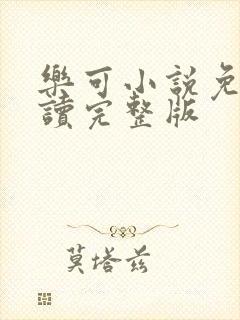 樂可小說免
讀完整版
莫塔茲